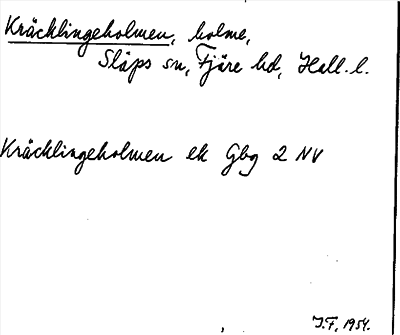 Kräcklingeholmen, holme,
Släps sn, Fjäre hd, Hall. l.
Kräcklingeholmen ek Gbg 2 NV
J.F. 1954.